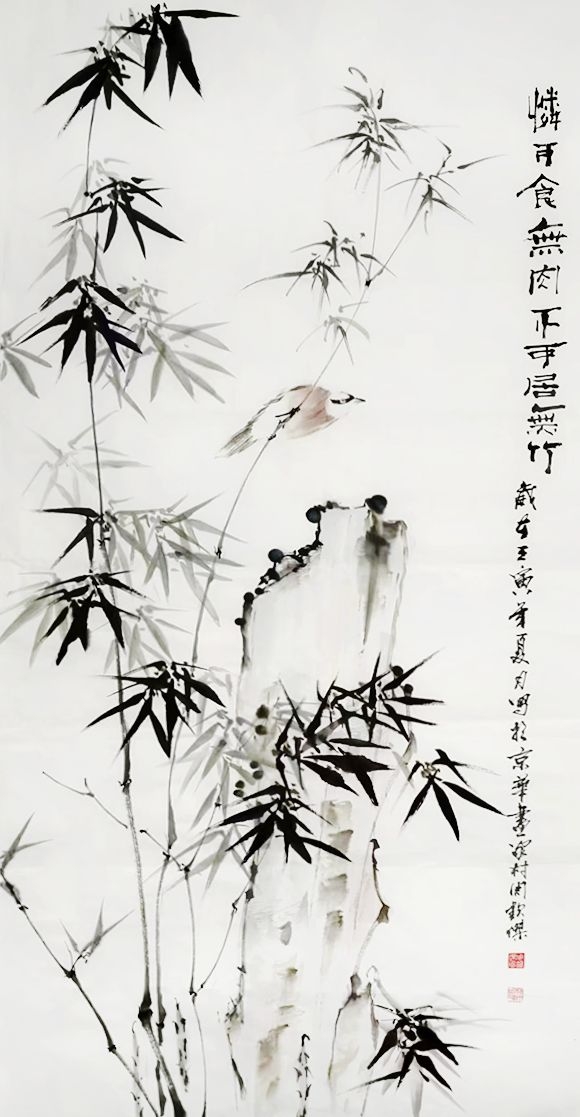 憐可食無肉不可居無竹
歲在壬寅年夏月寫於京華畫家村傑